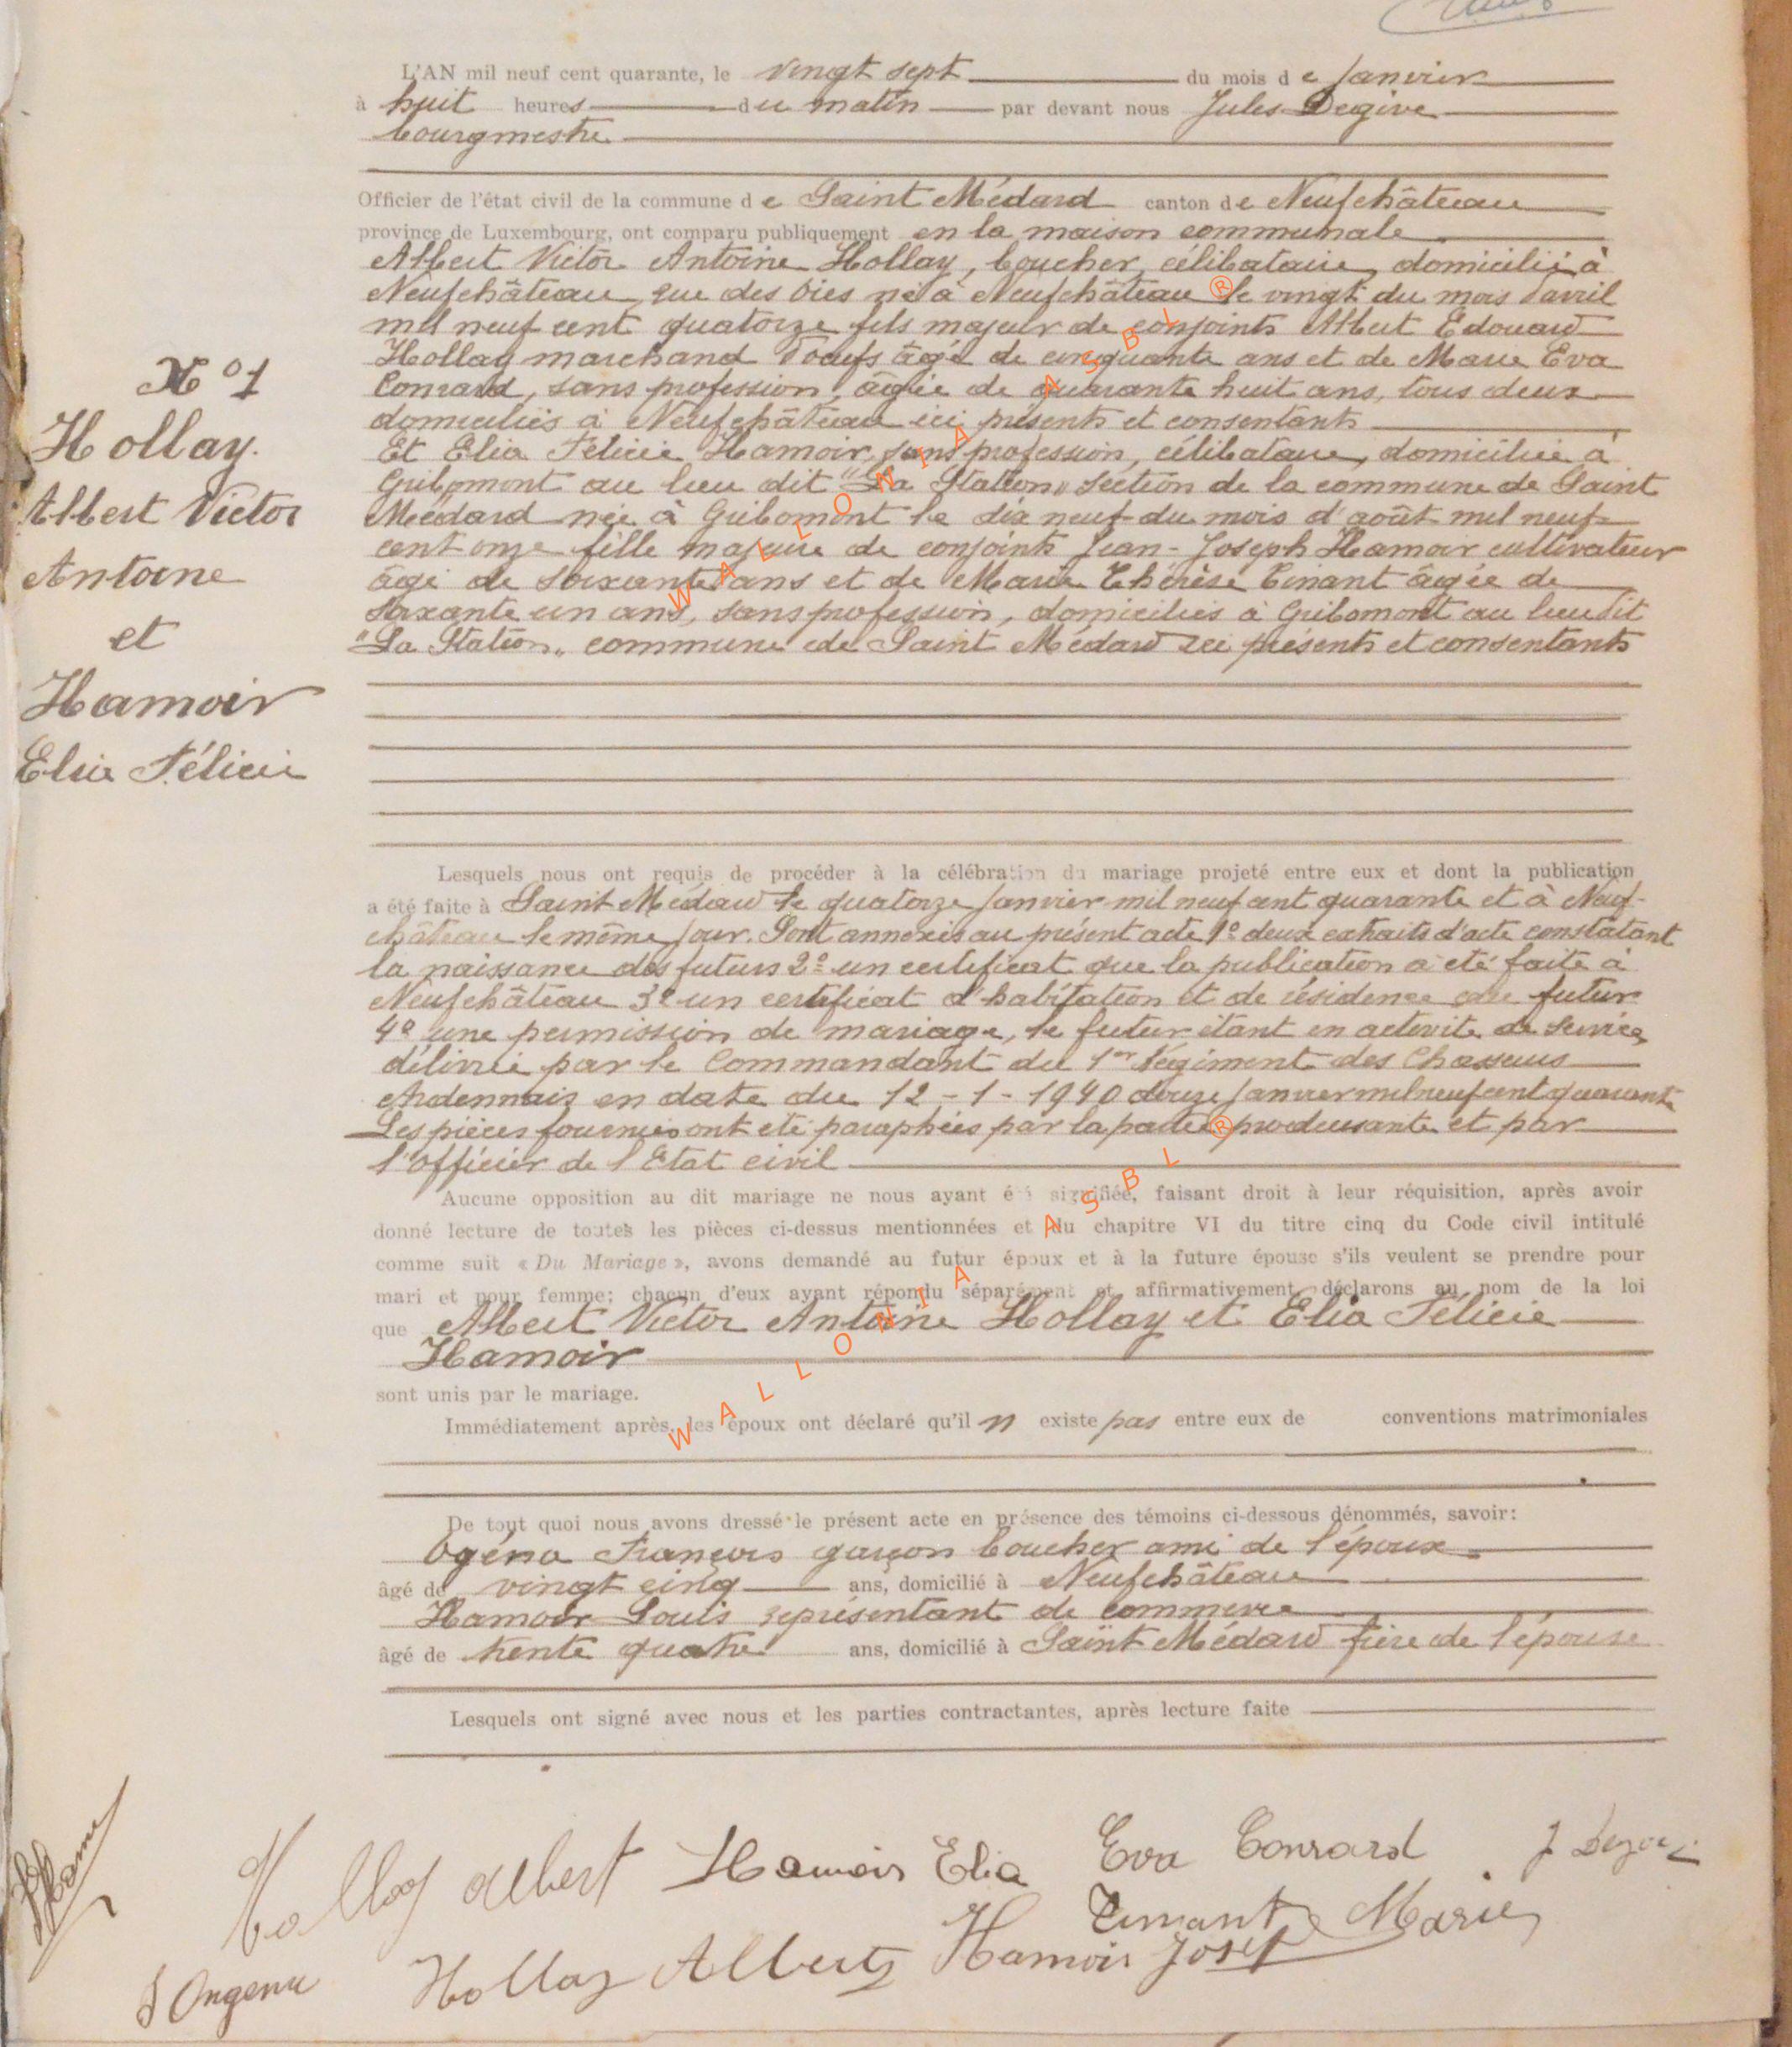 L'AN mil neuf cent quarante, le vingt sept du mois de Janvier
à huit heures du matin par devant nous Jules Degive
bourgmestre
Officier de l'état civil de la commune de Saint Médard canton de Neufchâteau
province de Luxembourg, ont comparu publiquement en la maison communale
Albert Victor Antoine Hollay, boucher, célibataire, domicilié à
Neufchâteau, rue des Oies né à Neufchâteau le vingt du mois d'avril
mil neuf cent quatorze fils majeur de conjoints Albert Edouard
Hollay marchand d'oeufs âgé de cinquante ans et de Marie Eva
Conrard, sans profession, âgée de quarante huit ans, tous deux
domiciliés à Neufchâteau ici présents et consentants
Et Elia Félicie Hamoir, sans profession, célibataire, domiciliée à
Gribomont au lieu dit "La Station" section de la commune de Saint
Médard née à Gribomont le dix neuf du mois d'août mil neuf
cent onze fille majeure de conjoints Jean-Joseph Hamoir cultivateur
âgé de soixante ans et de Marie Thérèse Tinant âgée de
soixante un ans, sans profession, domiciliés à Gribomont au lieu dit
"La Station" commune de Saint Médard ici présents et consentants
N° 1
Hollay.
Albert Victor
Antoine
et
Hamoir
Elia Félicie
Lesquels nous ont requis de procéder à la célébration du mariage projeté entre eux et dont la publication
a été faite à Saint Médard le quatorze Janvier mil neuf cent quarante et à Neuf-
château le même jour. Sont annexés au présent acte 1° deux extraits d'acte constatant
la naissance des futurs 2° un certificat que la publication a été faite à
Neufchâteau 3° un certificat d'habitation et de résidence du futur
4° une permission de mariage, le futur étant en activité de service,
délivrée par le Commandant du 1er Régiment des Chasseurs
Ardennais en date du 12-1-1940 douze Janvier mil neuf cent quarante
Les pièces fournies ont été paraphées par la partie produisante et par
l'officier de l'Etat civil
Aucune opposition au dit mariage ne nous ayant été signifiée, faisant droit à leur réquisition, après avoir
donné lecture de toutes les pièces ci-dessus mentionnées et du chapitre VI du titre cinq du Code civil intitulé
comme suit « Du Mariage », avons demandé au futur époux et à la future épouse s'ils veulent se prendre pour
mari et pour femme; chacun d'eux ayant répondu séparément et affirmativement, déclarons au nom de la loi
que Albert Victor Antoine Hollay et Elia Félicie
Hamoir
sont unis par le mariage.
Immédiatement après, les époux ont déclaré qu'il n existe pas entre eux de conventions matrimoniales
De tout quoi nous avons dressé le présent acte en présence des témoins ci-dessous dénommés, savoir:
Ogéna François garçon boucher ami de l'époux
âgé de vingt cinq ans, domicilié à Neufchâteau
Hamoir Louis représentant de commerce
âgé de trente quatre ans, domicilié à Saint Médard frère de l'épouse
Lesquels ont signé avec nous et les parties contractantes, après lecture faite
Hollay Albert Hamoir Elia Eva Conrard J Degive
Tinant Marie
Hollay Albert Hamoir Josef
F Ongena
WALLONIA ASBL ®
WALLONIA ASBL ®